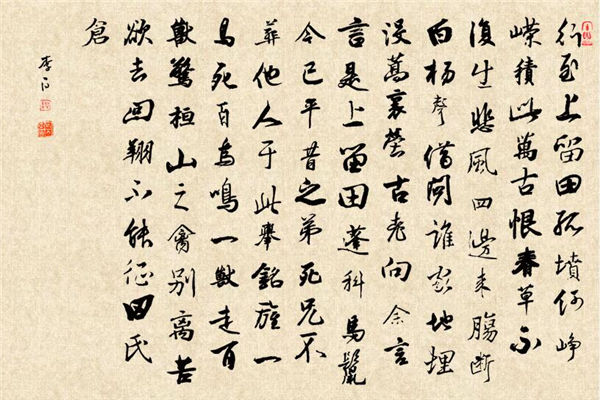 行至上留田孤墳何峥
嶸積此萬古恨春草不
復生悲風四邊来腸断
白楊聲借問誰家地埋
没蒿裏塋古老向余言
言是上留田蓬科馬鬣
今已平昔之弟死兄不
葬他人于此舉銘旌一
鳥死百鳥鳴一獸走百
獸驚桓山之禽别離苦
欲去回翔不能征田氏
倉
李白